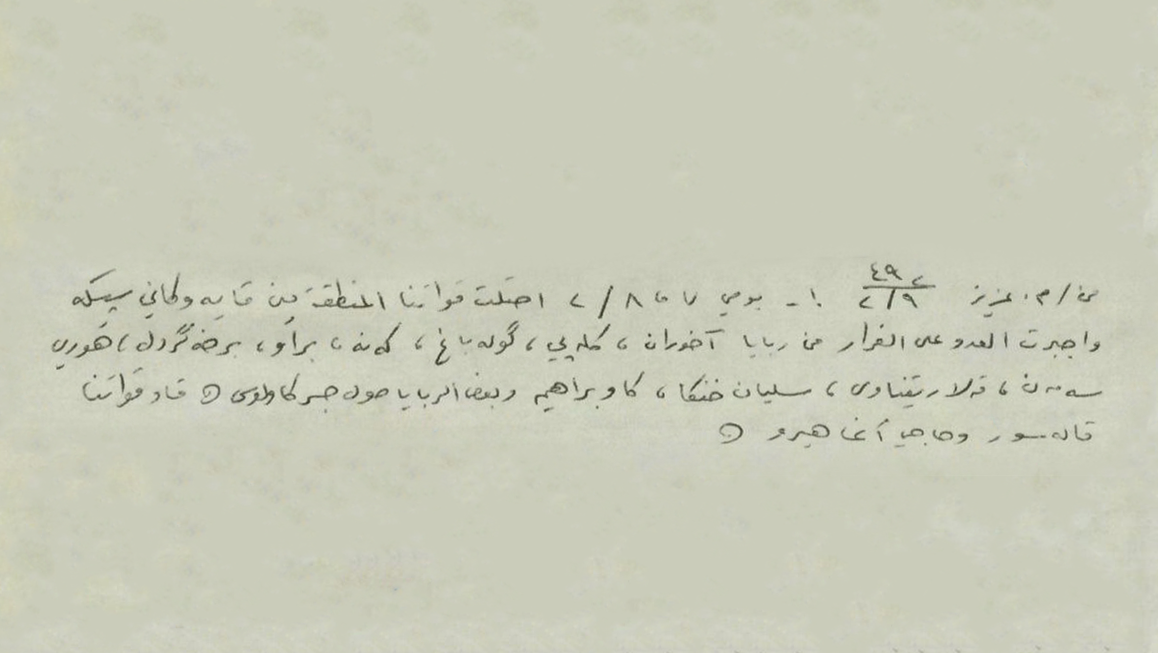 من / م. عزيز ٤٩٢ / ٢/٩ ١- يومي ٧ و ٨ / ٢ احتلت قواتنا المنطقة بين قايه وكاني سيكه
واجبرت العدو على الفرار من ربايا آخوران ، كله پي ، گوله باغ ، كه نه ، براو ، برضه گردله ، هوري
سه ره ن ، قلا ريتناوى ، سليمان خنكا ، كاوبراهيم وبعض الربايا حول جسر كاولوس ⊙ قاد قواتنا
قاله سور وحاجي آغا هيرو ⊙